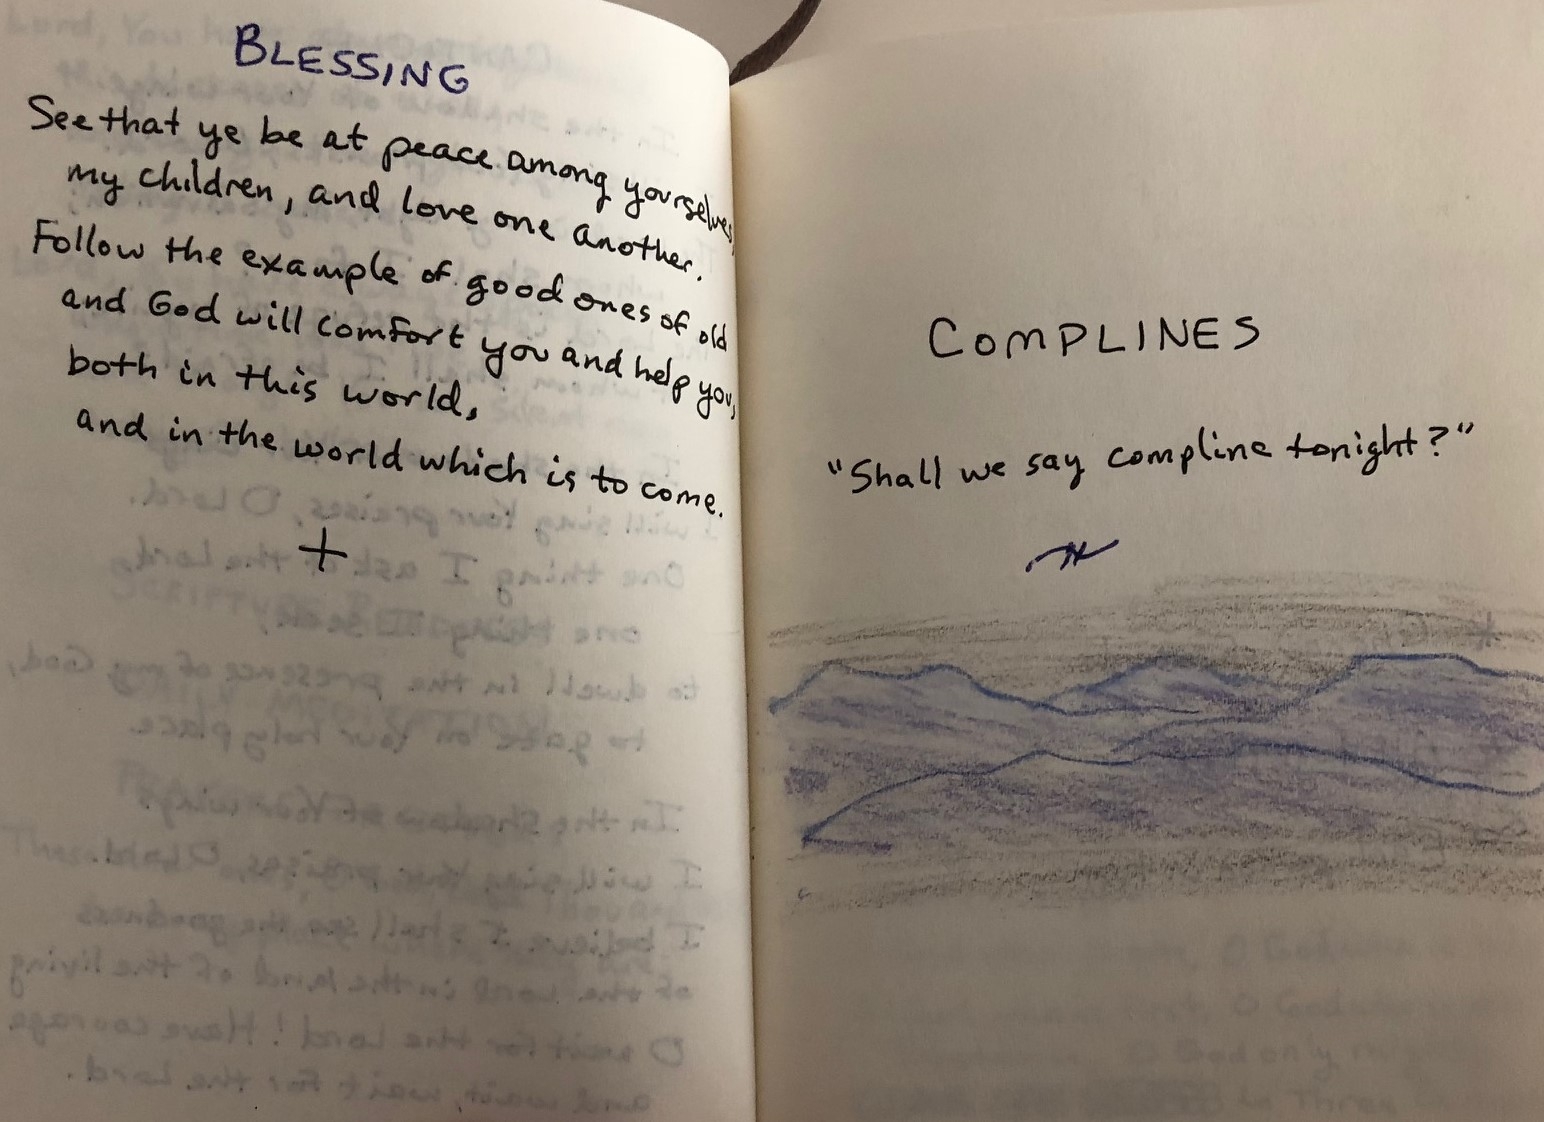 BLESSING
See that ye be at peace among yourselves,
my children, and love one another.
Follow the example of good ones of old
and God will comfort you and help you,
both in this world,
and in the world which is to come.
COMPLINES
"Shall we say compline tonight?"